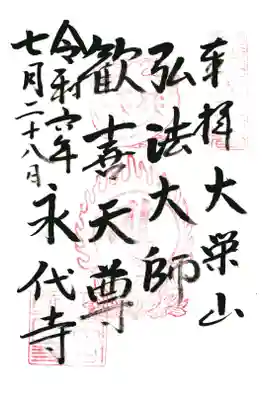 奉拝 大栄山
弘法大師
歓喜天尊
永代寺
令和六年
七月二十八日